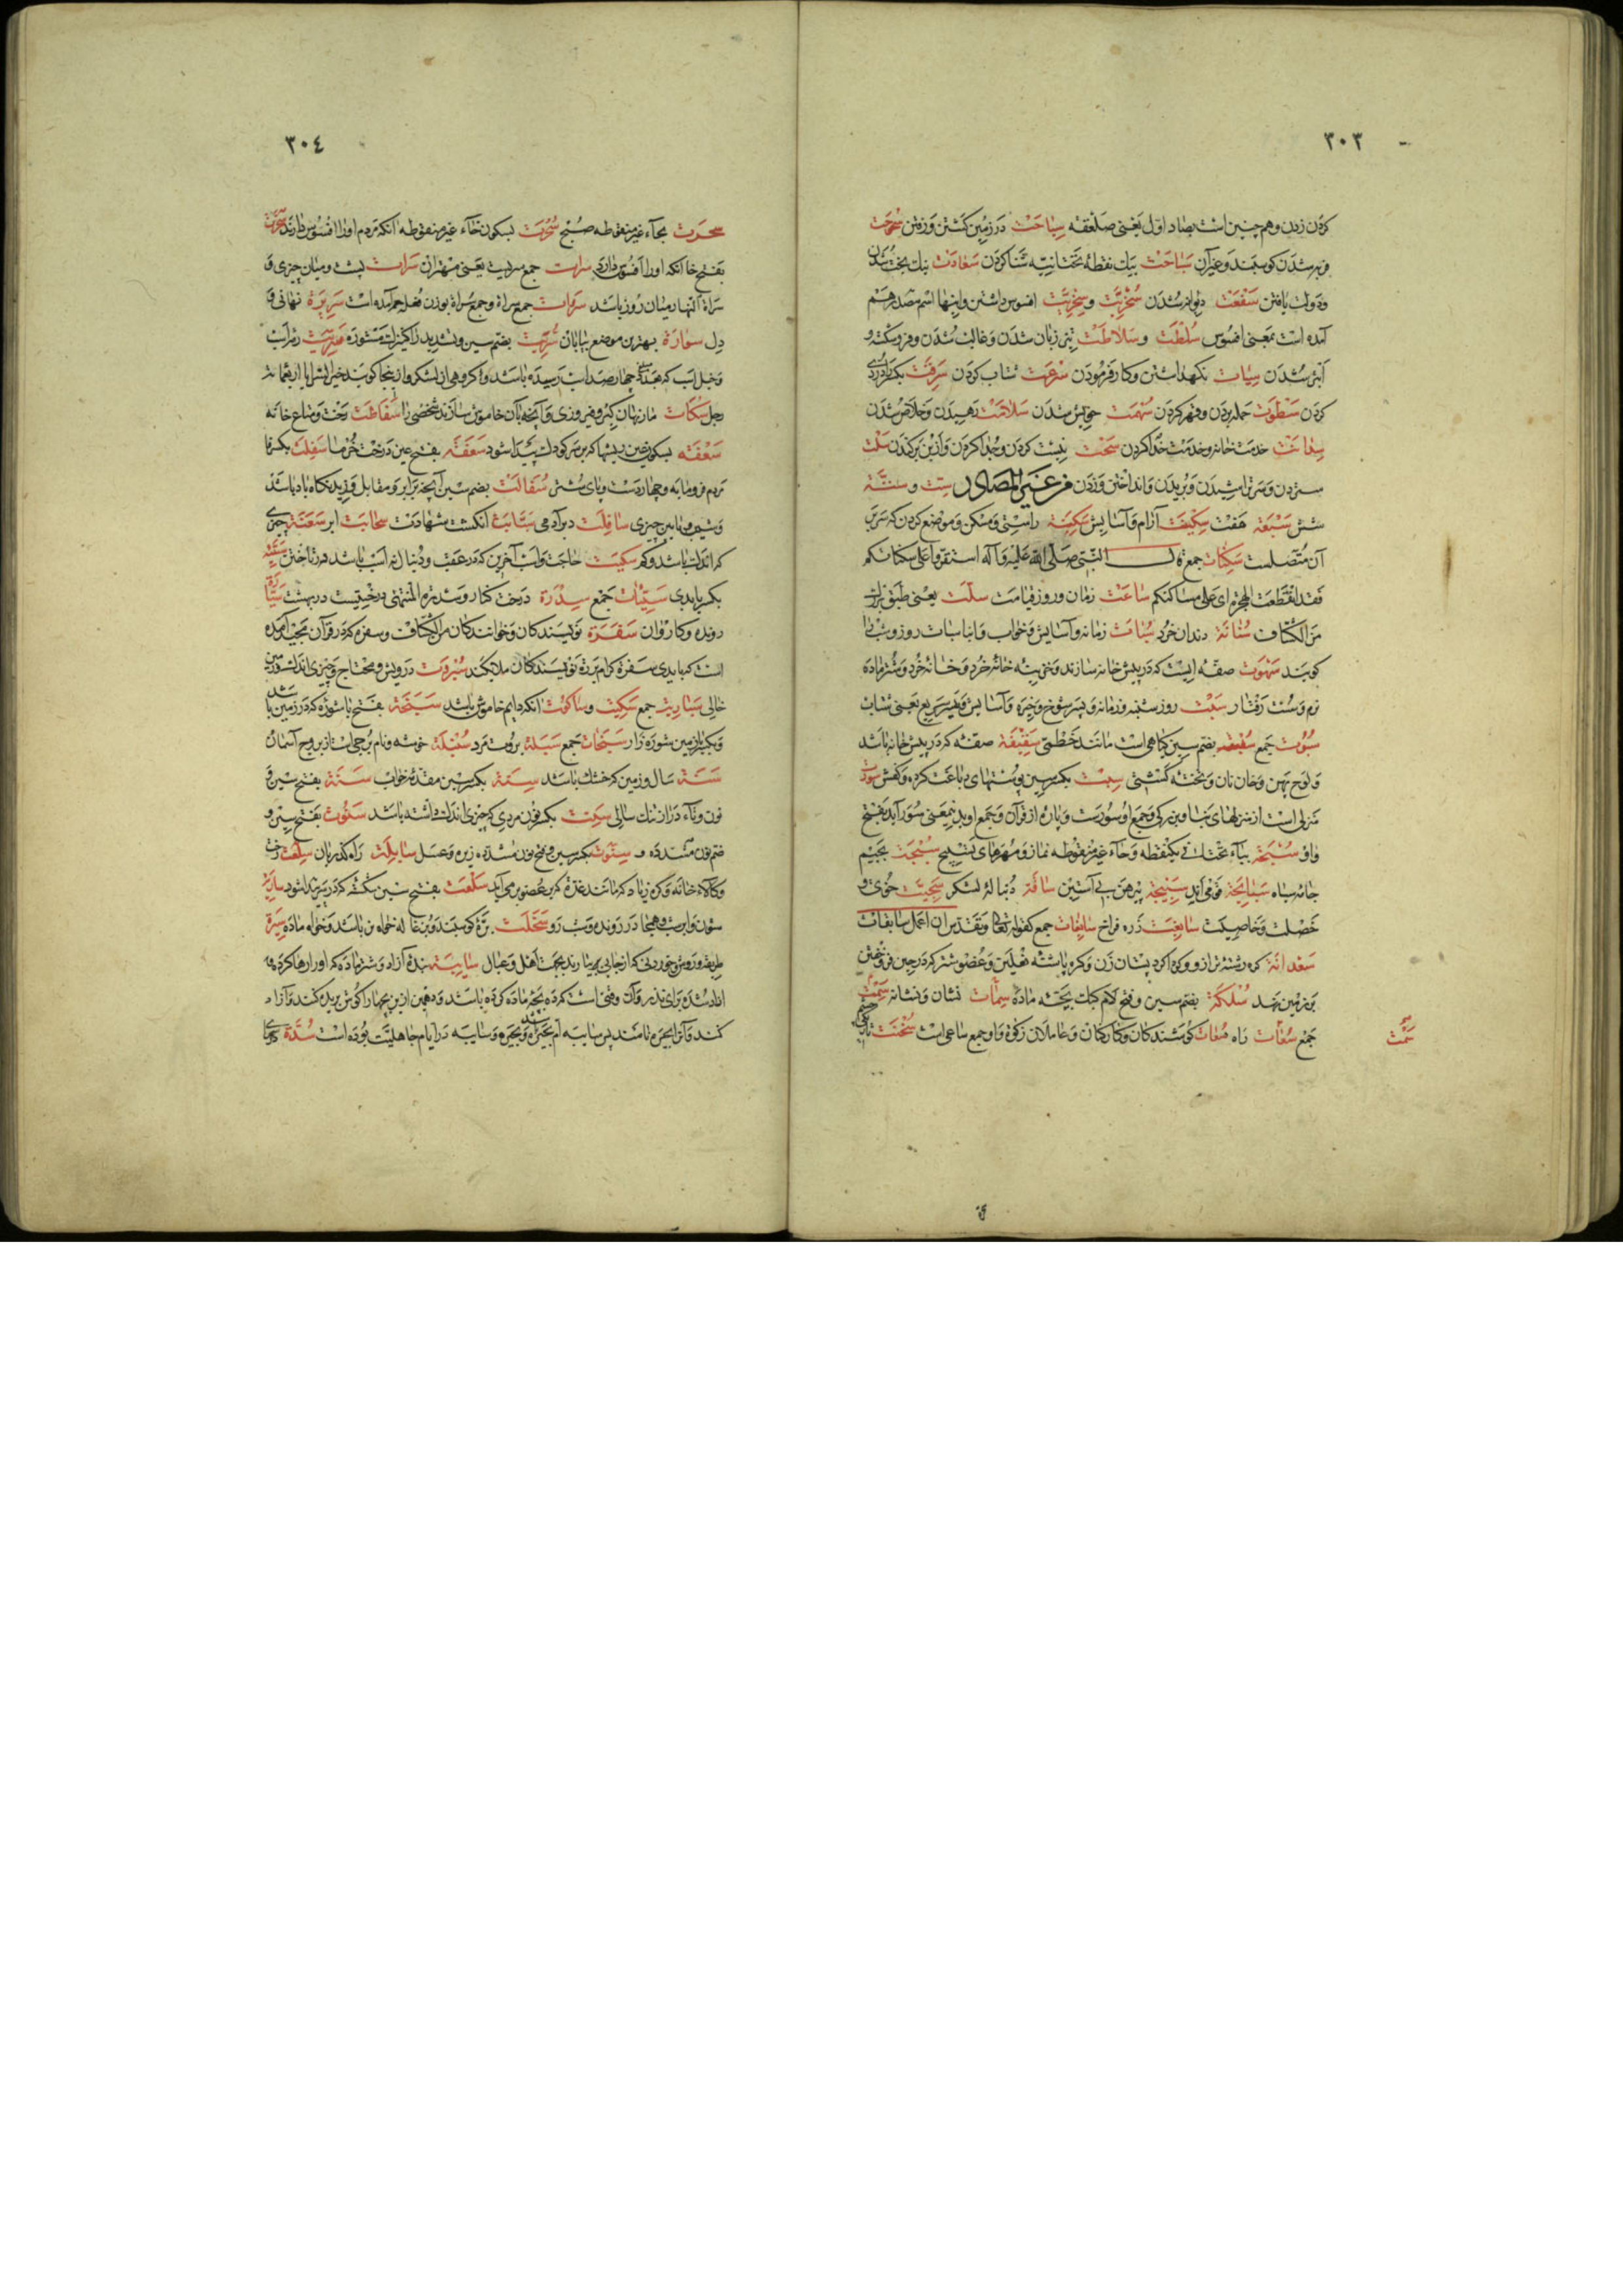 ٣٠٣
کردن زدن و هم چنین است بصاد اول یعنی صلعقه سیاحت در زمین کشتن و رفتن سموحت
فربه شدن کوسبند و غیر آن سباحت بیک نقطه تحتانیه شنا کردن سعادت نیک بخت شدن
و دولت یافتن سفعت دیوانه شدن سخریت و سخریت افسوس داشتن و اینها اسم مصدر هم
آمده است بمعنی افسوس سلطت و سلاطت تیز زبان شدن و غالب شدن و فرو سکته و
آبتر شدن سیات نکهداشتن و کار فرمودن سرعت شتاب کردن سرقت بکسر را دزدی
کردن سطوت حمله بردن و قهر کردن سهمت خویش شدن سلامت رهیدن و خلاص شدن
سدانت خدمت خانه و خدمت خدا کردن سحت نیست کردن و جدا کردن و از بن برکندن سلت
ستردن و سر تراشیدن و بریدن و انداختن و زدن فرعنی المصادر ست و ستة
شش سبعة هفت سکینت آرام و آسایش سکینة راستی و مسکن و موضع کردن که سر بر
آن متصلست سکنات جمع قال النبی صلی الله علیه و آله استقروا علی سکناتکم
فقد انقطعت الهجرة ای علی مساکنکم ساعت زمان و روز قیامت سلت یعنی طبق بزرک
من الکشاف سنانة دندان خرد سبات زمانه و آسایش و خواب و ابنا سبات روز و شب را
کویند سهوت صفه ایست که در پیش خانه سازند و خزینه خانه خرد و خانه خرد و شتر ماده
نرم و سست رفتار سبت روز شنبه و زمانه و پسر شوخ و خیره و آسایش و سیر سریع یعنی شتاب
سبوت جمع بضم سین کیاهی است مانند خطمی سقیفة صفه که در پیش خانه باشد
و لوح پهن و خان نان و تخته کشتی سبت بکسر سین پوستهای دباغت کرده و کفش سورت
منزلی است از منزلهای بنا و بزرکی و جمع او سورست و پاره از قرآن و جمع او بدین معنی سور آید بفتح
واو سبحة بباء تحتانی یکنقطه و حاء غیر منقوطه نماز و مهرهای تسبیح سبجت بجیم
جامه سیاه سبایحة قومی اند سبیجة پیرهن بی آستین ساقة دنباله لشکر سجیت خوی و
خصلت و خاصیت سابغت زره فراخ سابغات جمع کقوله تعالی و تقدس ان اعمل سابغات
سعدانة کره رشته ترازو و کره اکرد پستان زن و کره پاشنه نعلین و عضو شتر که در حین فرو خفتن
بر زمین نهد سلکة بضم سین و فتح لام کبک بچه ماده سمات نشان و نشانه سمت
جمع سعات راه سعات کوشندکان و کارکنان و عاملان زکوة و او جمع ساعی است سخنت
سمت
٣٠٤
سحرت بحاء غیر منقوطه صبح سخرت بسکون خاء غیر منقوطه آنکه مردم او را افسوس دارند سخرت
بفتح خا آنکه او را افسوس دارد سرات جمع سریت یعنی مهتران سرات پشت و میان چیزی و
سراة النهار میان روز باشد سروات جمع سراة و جمع سراة بوزن فعله جمع آمده است سریرة نهانی و
دل سرارة بهترین موضع بیابان سریت بضم سین و تشدید را کنیزک مستوره سریت رفراب
رجل سکات مار نهان کبر و فیروزی و آنچه بآن خاموش سازند شخصی را سفاطت رخت و متاع خانه
سعفة بسکون عین ریشها که بر سر کودک پیدا شود سعفة بفتح عین درخت خرما سفلت بکسر فا
مردم فرومایه و چهار دست و پای شتر سفالت بضم سین آنچه برابر و مقابل وزیدنکاه باد باشد
و شیب و پایین چیزی سافلت دبر آدمی سبابت انکشت شهادت سحابت ابر سعنة چیزی
که اندک باشد و کم سکیت حاجت و اسب آخرین که در عقب و دنباله اسب باشد در تاختن سیئة
بکسر یا بدی سیئات جمع سدرة درخت کنار و سدرة المنتهی درختیست در بهشت سیارة
رونده و کاروان سفرة نویسندکان و خوانندکان من الکشاف و سفره که در قرآن مجید آمده
است که بایدی سفرة کرام بررة نویسندکان ملایکند سبروت درویش و محتاج و چیزی اندک و زمین
خالی سباریت جمع سکیت و ساکوت آنکه دایم خاموش باشد سبخة بفتح با شوره که در زمین باشد
و بکسر با زمین شوره زار سبخات جمع سبلة بروت مرد سنبلة خوشه و نام برجی است از بروج آسمان
سنة سال و زمین که خشک باشد سنة بکسر سین مقدمه خواب سنة بفتح سین و
نون و تاء دراز تنک سالی سنت بکسر نون مردی که چیزی اندک داشته باشد سنوت بفتح سین و
ضم نون مشدده و سنوت بکسر سین و فتح نون مشدده زیره و عسل سابلت راه کذریان سلعت رخت
و کالاء خانه و کره زیاد که مانند غده که بر عضو بر می آید سلعت بفتح سین شکسته که در سر پیدا شود ساریة
ستون و ابر شب و هیجا در رونده و شب رو سخلت بره کوسبند و بزغاله خواه نر باشد و خواه ماده سیرة
طریقه و روش و خوردنی که از جایی بیارند بجهت اهل و عیال سایبة بنده آزاد و شتر ماده که او را رها کرده
کنند و آنرا بحیره نامند پس سایبه ام بحیره و بحیره و سایبه در ایام جاهلیت بوده است سدة